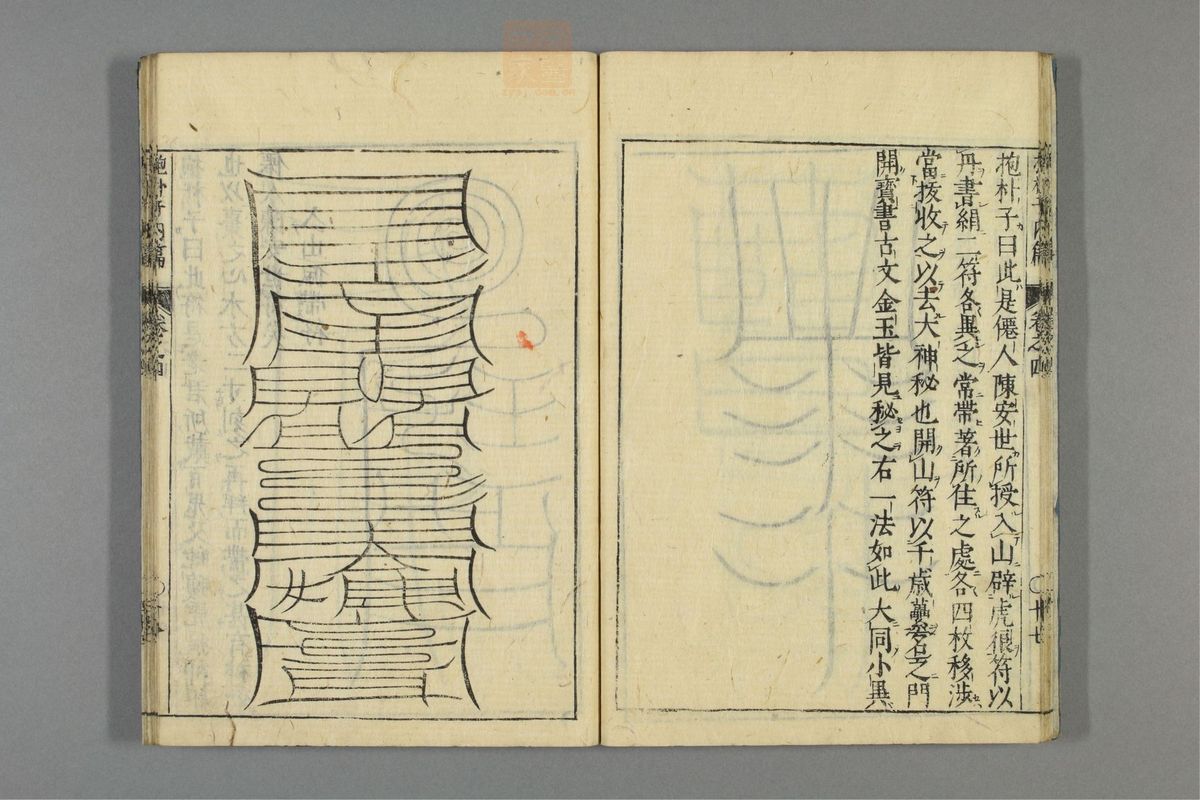 抱朴子曰此是僊人陳安世所授入山辟虎狼符以
丹書絹二符各異之常帶著所住之處各四枚移涉
當拔收之以去大神秘也開山符以千歲虆名之門
開寳書古文金玉皆見秘之右一法如此大同小異
抱朴子内篇 卷之四 廿七
抱朴子内篇 卷之四